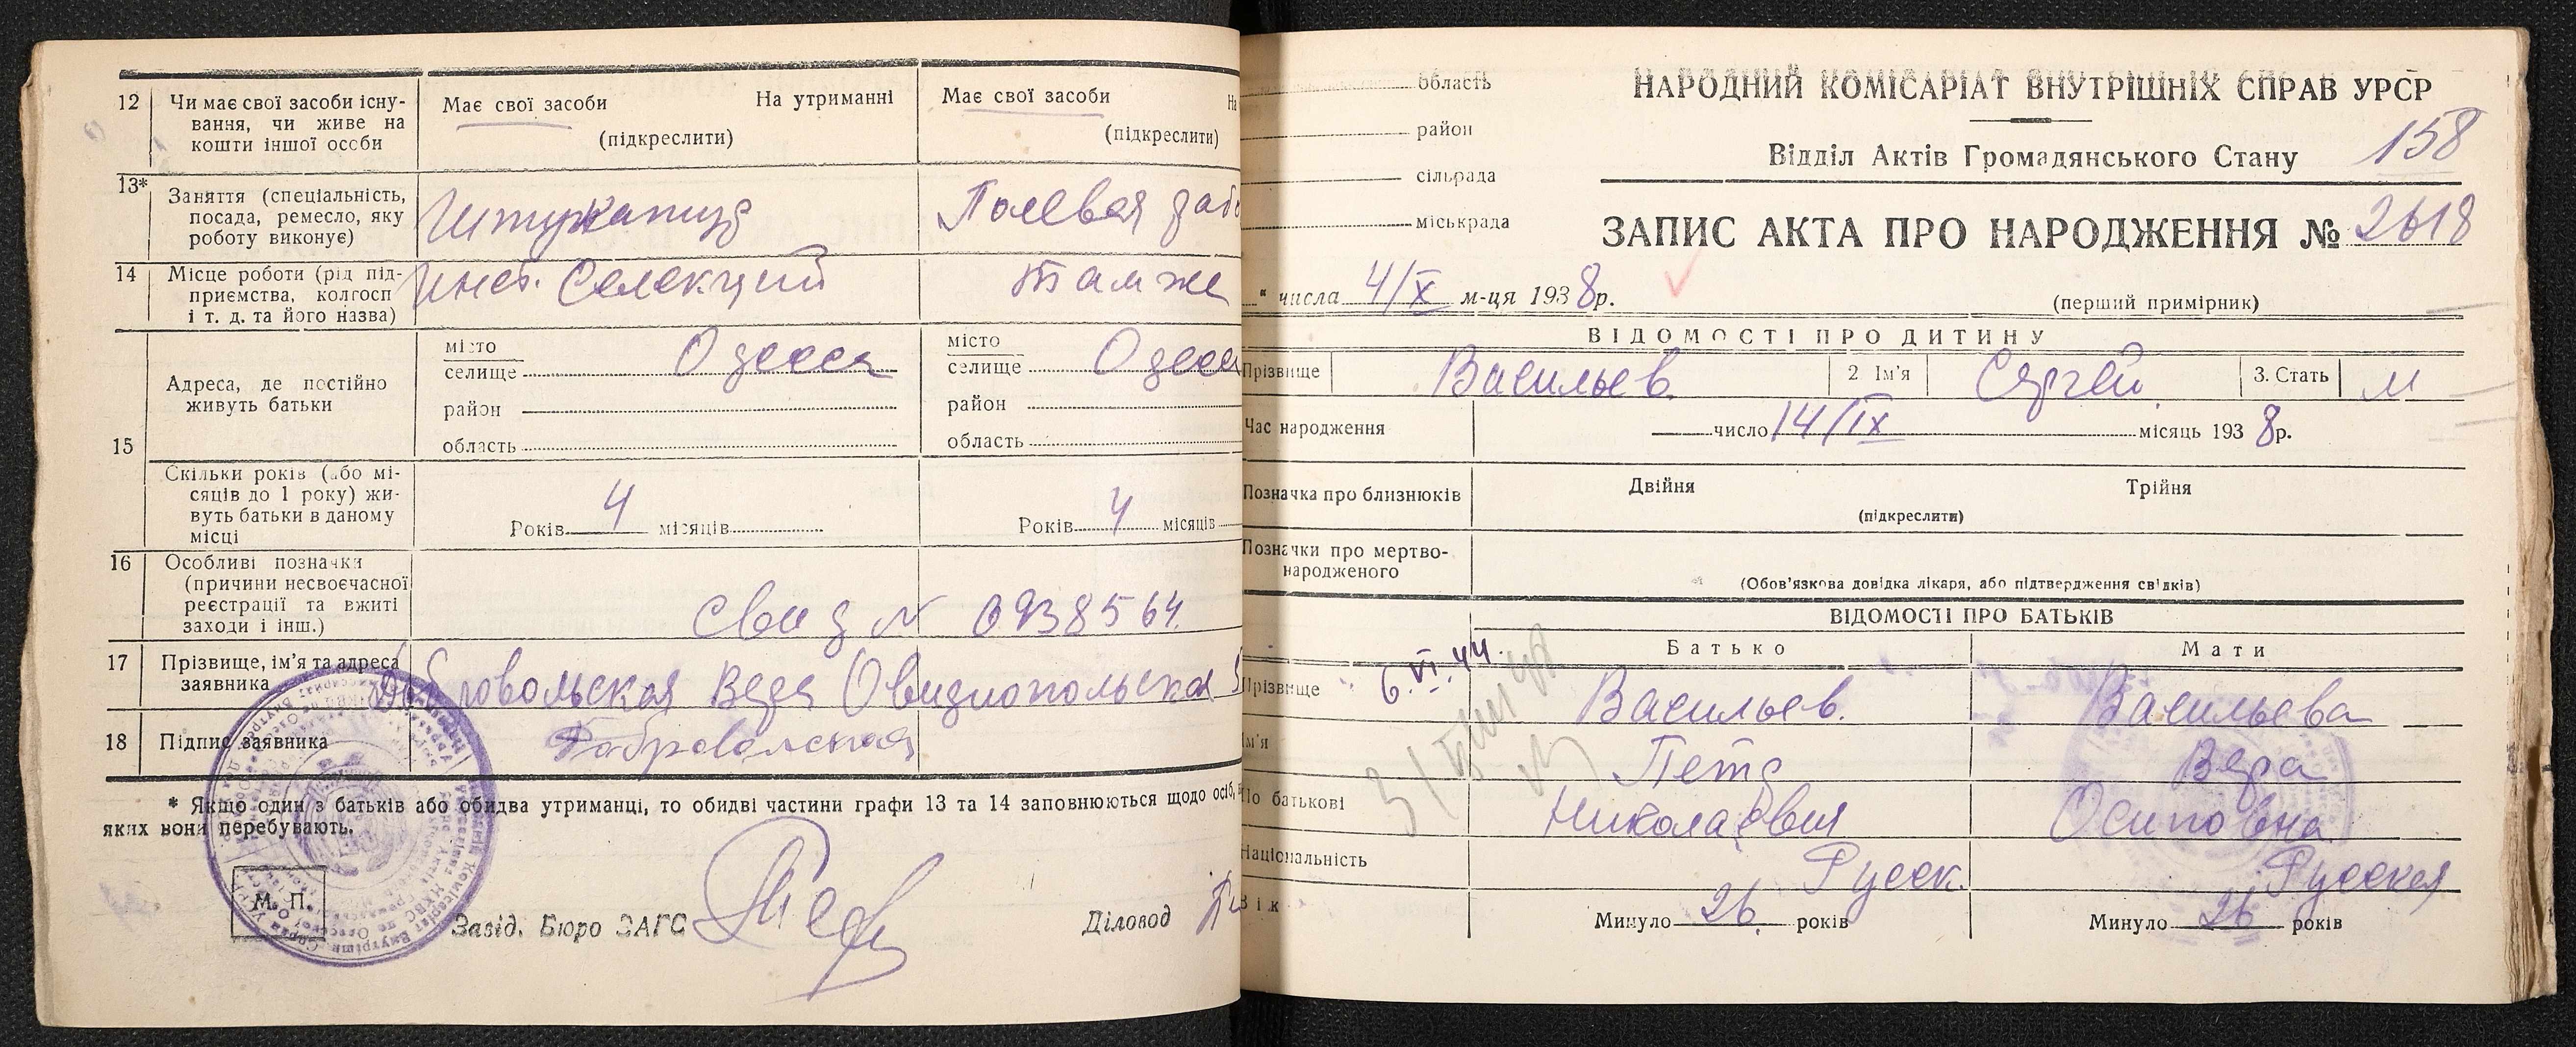 12 Чи має свої засоби існу-
вання, чи живе на
кошти іншої особи
Має свої засоби На утриманні
(підкреслити)
Має свої засоби На
(підкреслити)
13* Заняття (спеціальність,
посада, ремесло, яку
роботу виконує)
Штукатур
Полевая раб
14 Місце роботи (рід під-
приємства, колгосп
і т. д. та його назва)
Инст. Селекций
там же
15 Адреса, де постійно
живуть батьки
місто
селище Одесса
район
область
місто
селище Одесс
район
область
Скільки років (або мі-
сяців до 1 року) жи-
вуть батьки в даному
місці
Років 4 місяців
Років 4 місяців
16 Особливі позначки
(причини несвоєчасної
реєстрації та вжиті
заходи і інш.)
Свид N 0938564
17 Прізвище, ім'я та адреса
заявника
Добровольская Вера Овидиопольская
18 Підпис заявника
Добровольская
* Якщо один з батьків або обидва утриманці, то обидві частини графи 13 та 14 заповнюються щодо осіб,
яких вони перебувають.
М. П.
Завід. Бюро ЗАГС
Діловод
область
район
сільрада
міськрада
НАРОДНИЙ КОМІСАРІАТ ВНУТРІШНІХ СПРАВ УРСР
Відділ Актів Громадянського Стану
158
ЗАПИС АКТА ПРО НАРОДЖЕННЯ № 2618
" числа 4/X м-ця 1938р.
(перший примірник)
ВІДОМОСТІ ПРО ДИТИНУ
Прізвище Васильев 2 Ім'я Сергей 3. Стать М
Час народження число 14/IX місяць 1938р.
Позначка про близнюків Двійня Трійня
(підкреслити)
Позначки про мертво-
народженого
(Обов'язкова довідка лікаря, або підтвердження свідків)
ВІДОМОСТІ ПРО БАТЬКІВ
Батько Мати
6.VI.44.
Прізвище Васильев. Васильева
Ім'я Петр Вера
По батькові Николаевич Осиповна
Національність Русск. Русская
Вік Минуло 26 років Минуло 26 років